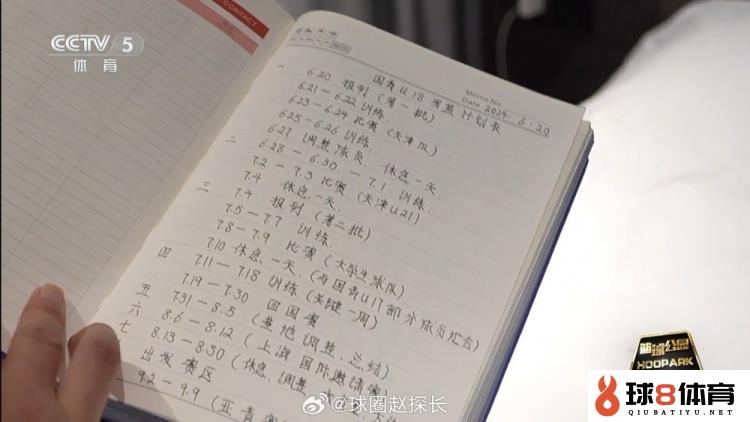 CCTV 5
体育
CONTACT
Memo No.
Date 2024. 6. 20
国青U18男篮计划表
一 6.20 报到(第一批)
6.21—6.22 训练
6.23—6.24 比赛(天津队)
6.25—6.26 训练
6.27 调整球员、休息一天
二 6.28—6.30.—7.1 训练
7.2—7.3 比赛(天津U21)
7.4 休息一天
三 7.4 报到(第二批)
7.5—7.7 训练
7.8—7.9 比赛(大学生球队)
7.10 休息一天(与国青U17部分球员汇合)
四 7.11—7.18 训练(关键一周)
7.19—7.30 四国赛
五 7.31—8.5(基地调整、总结)
六 8.6—8.12(上海国际邀请赛)
七 8.13—8.30(休息、调整、
出发赛区
9.2—9.9(亚青赛
@球圈赵探长
篮球公园
HOOPARK
球8体育
QIUBATIYU.NET